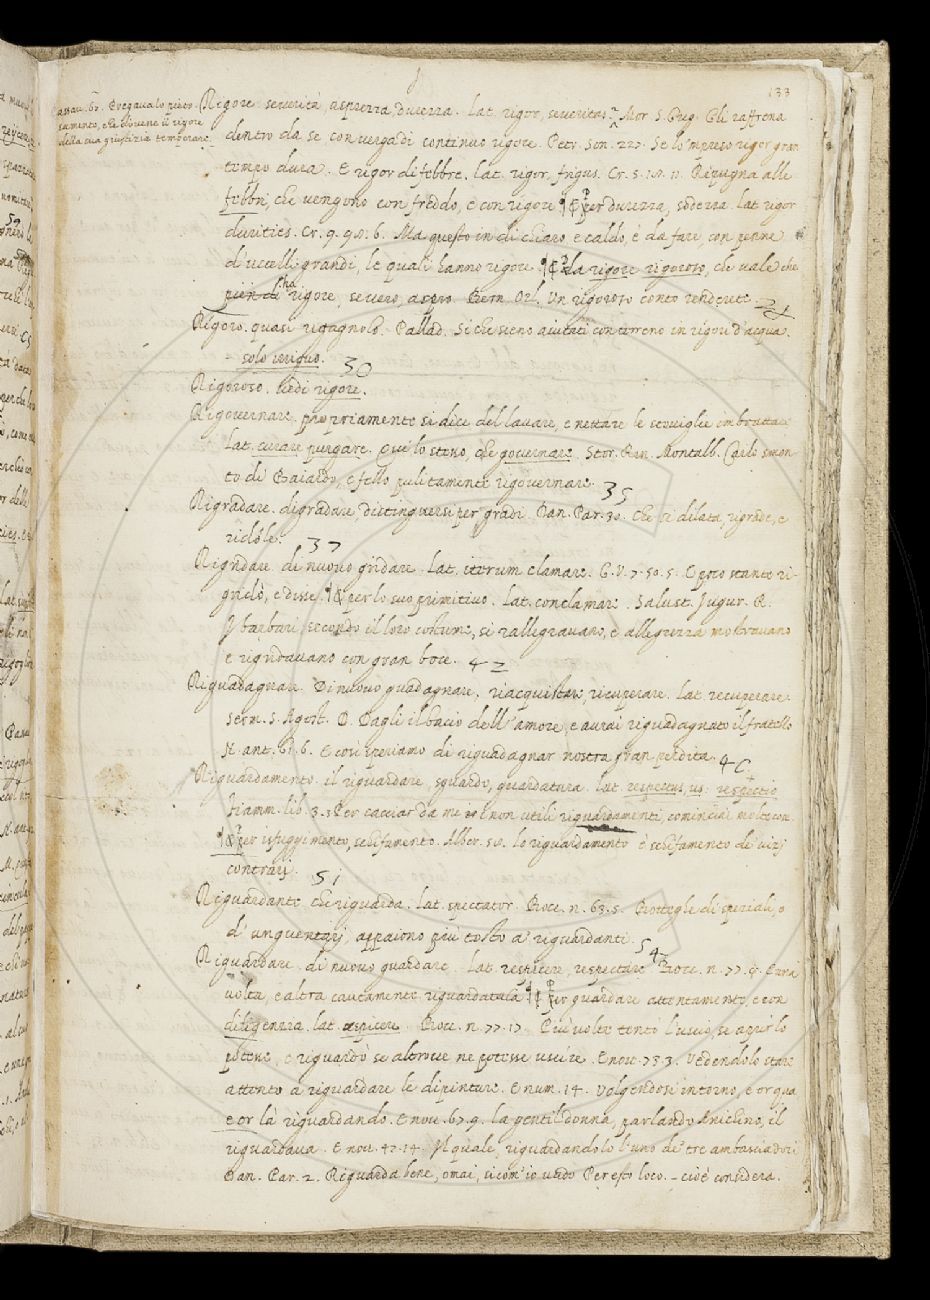 133
Passav. 60. Pregava lo pieto-
samente, che dovesse il rigore
della sua giustizia temperare.
Rigore. severità, asprezza, durezza. Lat. rigor, severitas. Mor. S. Greg. Gli raffrena
dentro da se con verga di continuo rigore. Petr. Son. 227. Se lo 'mpreso rigor gran
tempo dura. E rigor di febbre. Lat. rigor, frigus. Cr. 5. 18. 11. Ripugna alle
febbri, che vengono con freddo, e con rigore ¶ Per durezza, sodezza. lat. rigor
durities. Cr. 9. 90. 6. Ma questo in di chiaro e caldo, è da fare, con penne
d'uccelli grandi, le quali hanno rigore. ¶ Da rigore rigoroso, che vale che
pien di ha rigore, severo, aspro. Bern. Orl. Un rigoroso conto renderete. 21
Rigoro. quasi rigagnolo. Pallad. Siche sieno aiutati con terreno in rigori d'acqua.
- solo irriguo. 30
Rigoroso. vedi rigore.
Rigovernare. propriamente si dice del lavare, e nettare le stoviglie imbrattate
Lat. curare purgare. Qui lo stesso, che governare. Stor. Rin. Montalb. Carlo smon-
to di Baiardo, e fello pulitamente rigovernare. 35
Rigradare. digradare, distinguersi per gradi. Dan. Par. 30. Che si dilata, rigrada, e
ridole. 37
Rigridare. di nuovo gridare. Lat. iterum clamare. G. V. 7. 50. 5. E poco stante ri-
gridò, e disse. ¶ per lo suo primitivo. Lat. conclamare. Salust. Jugur. R.
I barbari, secondo il loro costume, si rallegravano, e allegrezza mostravano
e rigridavano con gran boce. 42
Riguadagnare. Di nuovo guadagnare, riacquistare, ricuperare. Lat. recuperare.
Serm. S. Agost. D. Dagli il bacio dell'amore, e aurai riguadagnato il fratello
N. ant. 61. 6. E così speriamo di riguadagnar nostra gran perdita. 46
Riguardamento. il riguardare, sguardo, guardatura. Lat. respectus, us. respectio
Fiamm. lib. 3. 5 Per cacciar da me i non utili riguardamenti, cominciai molte con.
¶ Per isfuggimento, schifamento. Alber. 50. lo riguardamento è schifamento de' vizij
contrarij. 51
Riguardante. che riguarda. Lat. spectator. Bocc. n. 63. 5. Botteghe di speziali, o
d'unguentarij, appaiono più tosto a' riguardanti. 54
Riguardare. di nuovo guardare. Lat. respicere, respectare Bocc. n. 77. 9. E una
volta, e altra cautamente riguardatala ¶ Per guardare attentamente, e con
diligenzia. Lat. aspicere. Bocc. n. 77. 17. Più volte tentò l'uscio, se aprir lo
potesse, e riguardò se altrove ne potesse uscire. E nov. 73. 3. Vedendolo stare
attento a riguardare le dipinture. E num. 14. Volgendosi intorno, e or qua
e or là riguardando. E nov. 67. 9. La gentil donna, parlando Anichino, il
riguardava. E nov. 42. 14. Il quale, riguardandolo l'uno de' tre ambasciadori
Dan. Par. 2. Riguarda bene, omai, sicom' io vado Per esto loco. - cioè considera.